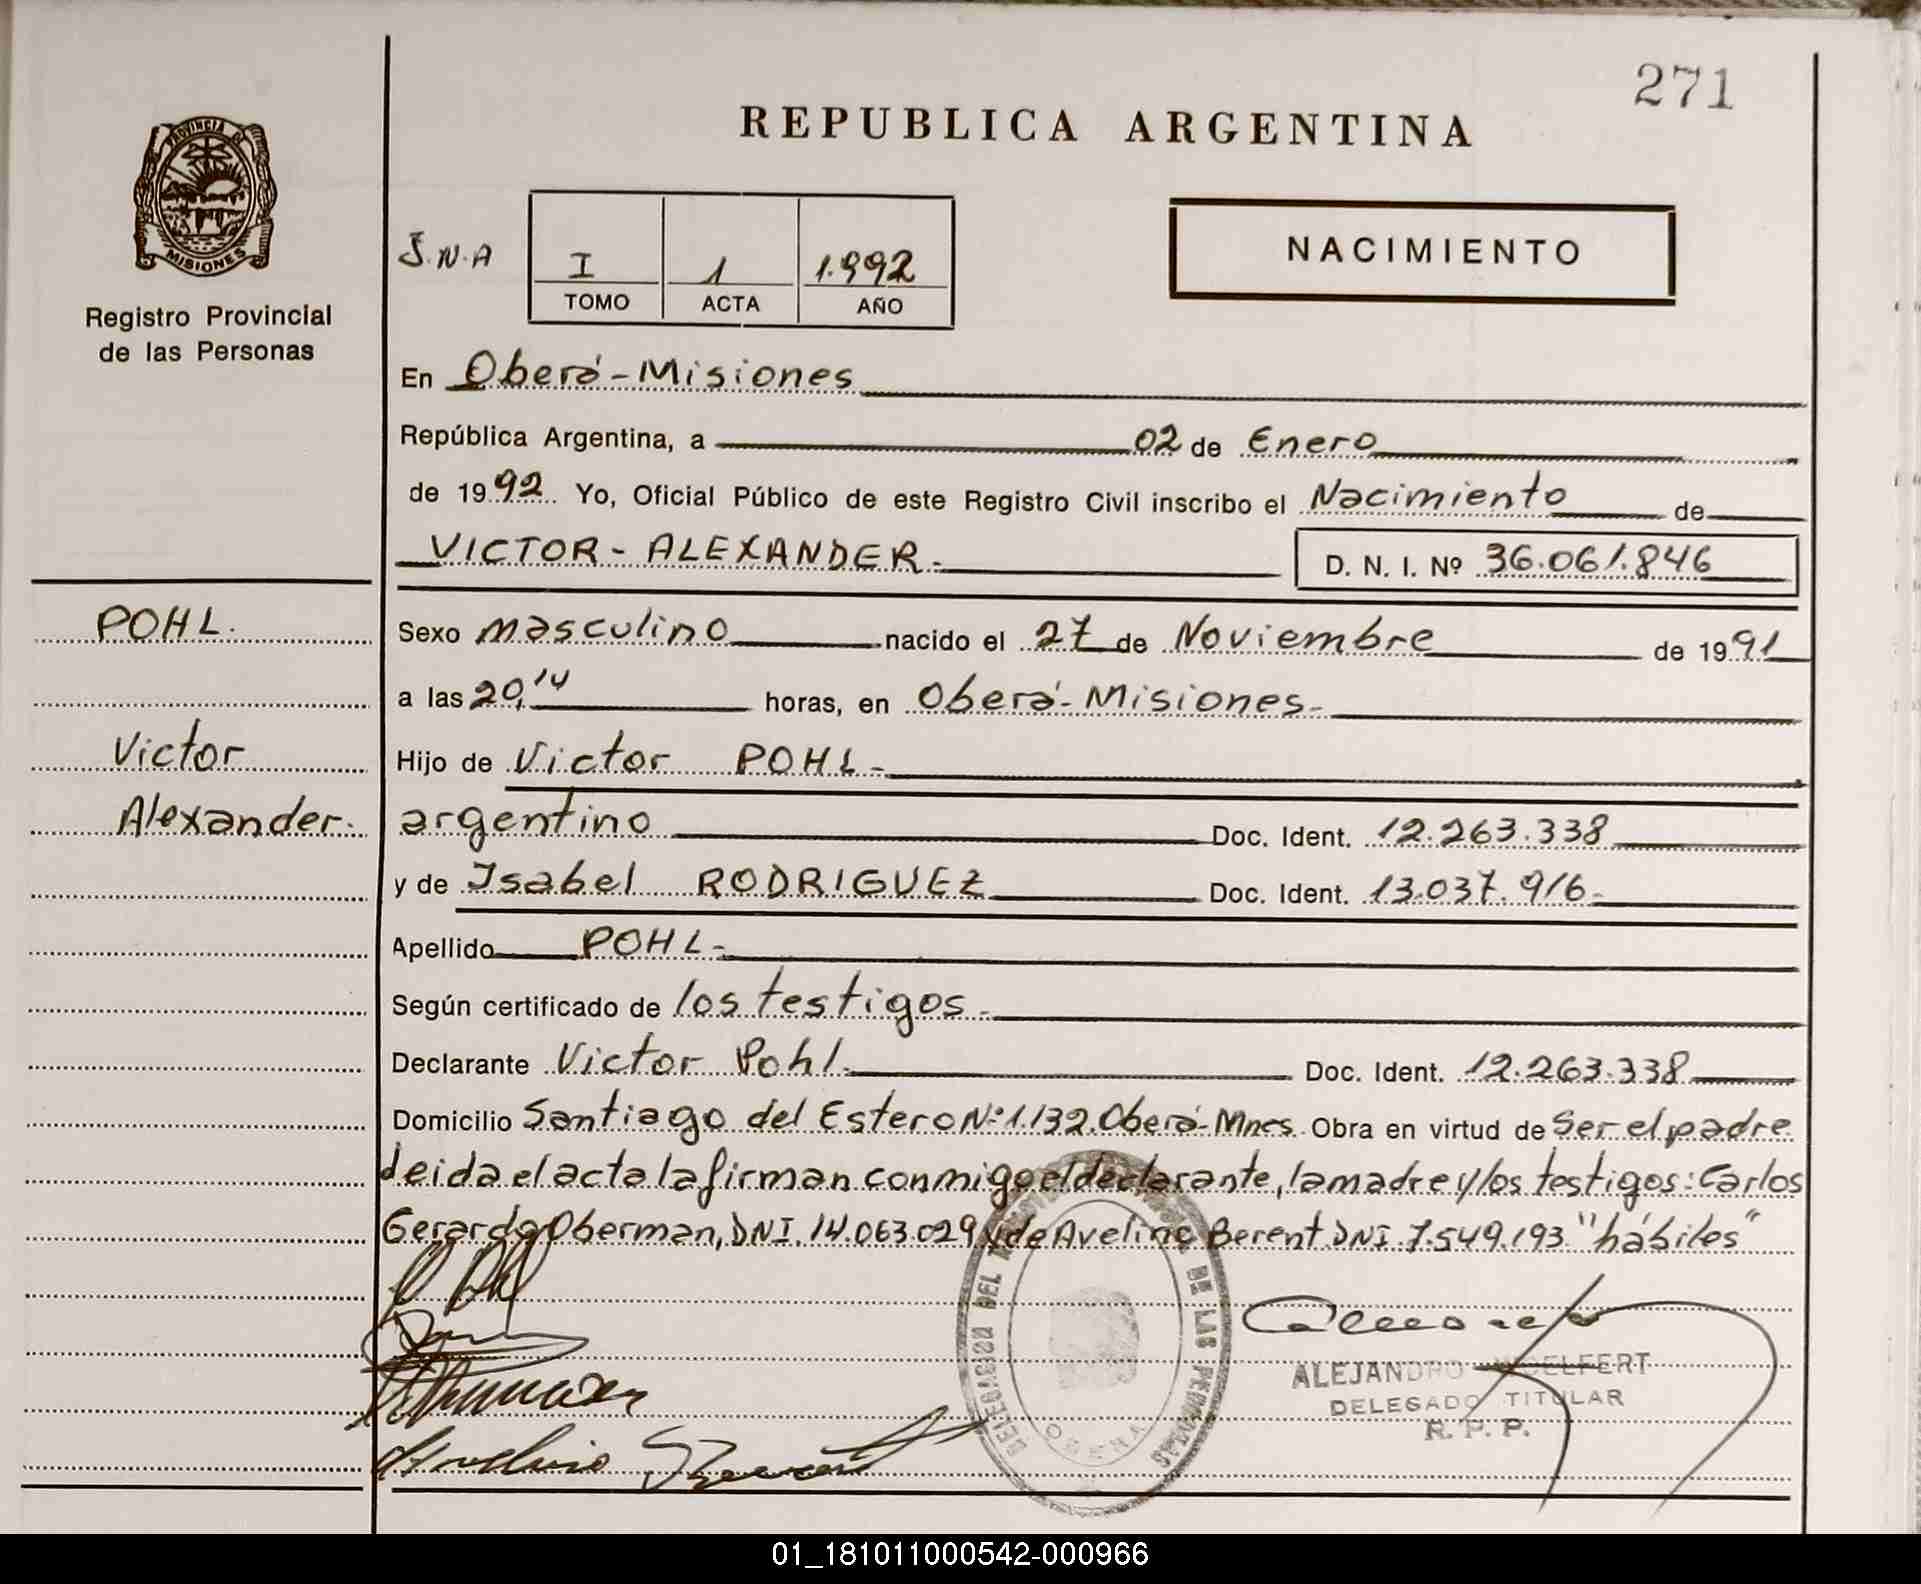 271
REPUBLICA ARGENTINA
PROVINCIA DE
MISIONES
Registro Provincial
de las Personas
J.N.A
I 1 1.992
TOMO ACTA AÑO
NACIMIENTO
En Oberá-Misiones
República Argentina, a 02 de Enero
de 1992 Yo, Oficial Público de este Registro Civil inscribo el Nacimiento de
VICTOR-ALEXANDER- D. N. I. Nº 36.061.846
POHL.
Sexo masculino nacido el 27 de Noviembre de 1991
a las 20,14 horas, en Oberá-Misiones-
Victor
Hijo de Victor POHL-
Alexander.
argentino Doc. Ident. 12.263.338
y de Isabel RODRIGUEZ Doc. Ident. 13.037.916-
Apellido POHL-
Según certificado de los testigos-
Declarante Victor Pohl- Doc. Ident. 12.263.338
Domicilio Santiago del Estero Nº 1.132.Oberá-Mnes. Obra en virtud de Ser el padre
leida el acta la firman conmigo el declarante, la madre y los testigos: Carlos
Gerardo Oberman, DNI. 14.063.029 y de Avelino Berent DNI 7.549.193 "hábiles"
DELEGACION DEL DE LAS PERSONAS
OBERA
ALEJANDRO WOELFERT
DELEGADO TITULAR
R. P. P.
01_181011000542-000966